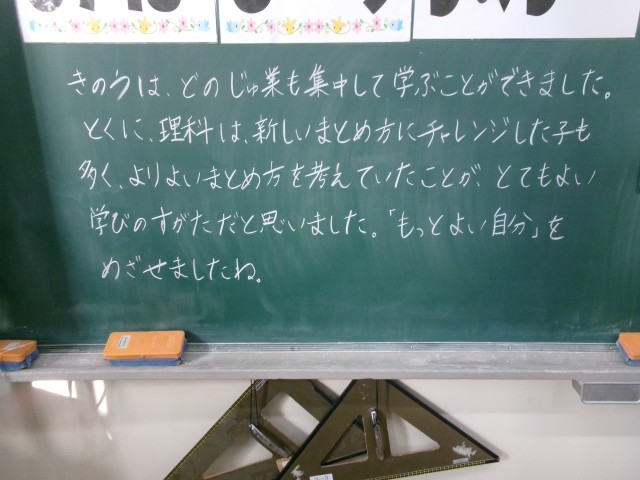 きのうは、どのじゅ業も集中して学ぶことができました。
とくに、理科は、新しいまとめ方にチャレンジした子も
多く、よりよいまとめ方を考えていたことが、とてもよい
学びのすがただと思いました。「もっとよい自分」を
めざせましたね。